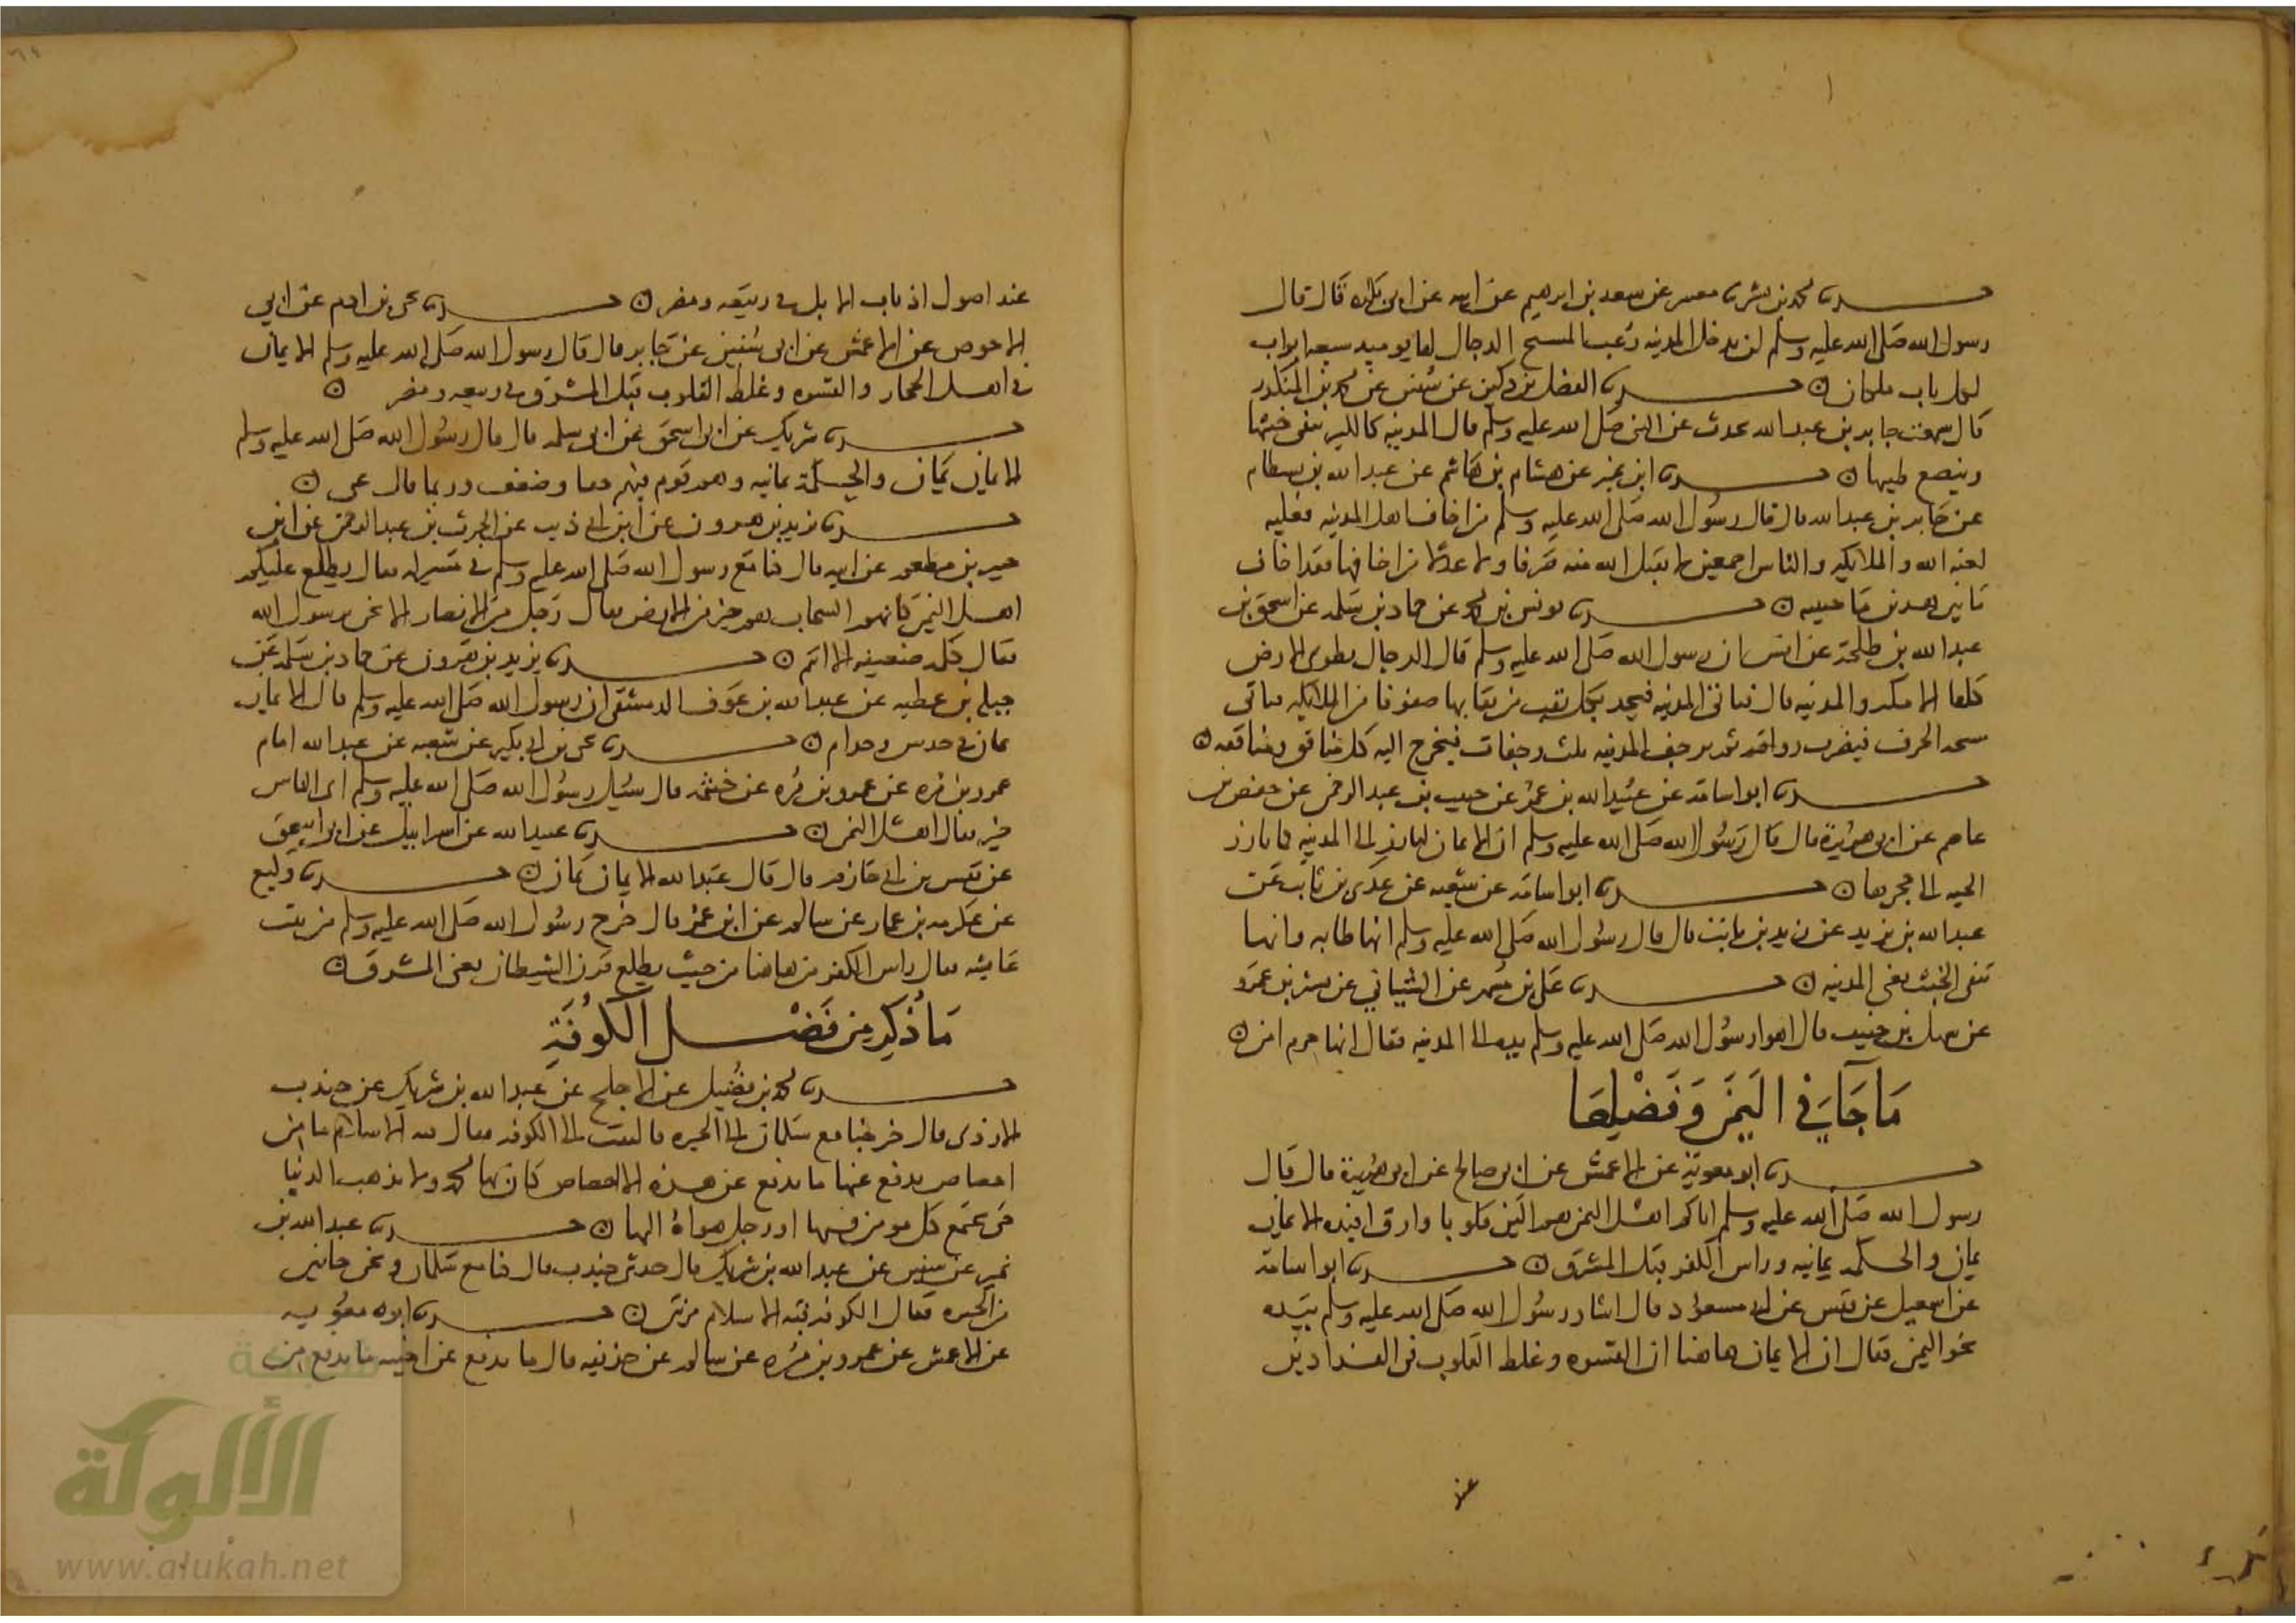 حدثنا محمد بن بشر حدثنا مسعر عن سعد بن ابرهيم عن ابيه عن ابي بكره قال قال
رسول الله صلى الله عليه وسلم لن يدخل المدينه رعب المسيح الدجال لها يوميد سبعه ابواب
لكل باب ملكان حدثنا الفضل بن دكين عن سفين عن محمد بن المنكدر
قال سمعت جابر بن عبد الله يحدث عن النبي صلى الله عليه وسلم قال المدينه كالكير تنفي خبثها
وينصع طيبها حدثنا ابن نمير عن هشام بن هاشم عن عبد الله بن بسطام
عن جابر بن عبد الله قال قال رسول الله صلى الله عليه وسلم من اخاف اهل المدينه فعليه
لعنه الله والملايكه والناس اجمعين لا يقبل الله منه صرفا ولا عدلا من اخافها فقد اخاف
ما بين هذين جنبيه حدثنا يونس بن محمد عن حماد بن سلمه عن اسحق بن
عبد الله بن طلحة عن انس ان رسول الله صلى الله عليه وسلم قال الدجال يطوى الارض
كلها الا مكه والمدينه قال فياتي المدينه فيجد بكل نقب من نقابها صفوفا من الملايكه فياتي
سبخه الجرف فيضرب رواقه ثم ترجف المدينه ثلث رجفات فيخرج اليه كل منافق ومنافقه
حدثنا ابو اسامه عن عبيد الله بن عمر عن حبيب بن عبد الرحمن عن حفص بن
عاصم عن ابي هريرة قال قال رسول الله صلى الله عليه وسلم ان الايمان ليارز الى المدينه كما تارز
الحيه الى جحرها حدثنا ابو اسامه عن شعبه عن عدي بن ثابت عن
عبد الله بن يزيد عن زيد بن ثابت قال قال رسول الله صلى الله عليه وسلم انها طابه وانها
تنفي الخبث يعني المدينه حدثنا علي بن مسهر عن الشيباني عن يسير بن عمرو
عن سهل بن حنيف قال اهوا رسول الله صلى الله عليه وسلم بيده الى المدينه فقال انها حرم امن
ما جاء في اليمن وفضلها
حدثنا ابو معويه عن الاعمش عن ابي صالح عن ابي هريرة قال قال
رسول الله صلى الله عليه وسلم اتاكم اهل اليمن هم الين قلوبا وارق افيده الايمان
يمان والحكمه يمانيه وراس الكفر قبل المشرق حدثنا ابو اسامة
عن اسمعيل عن قيس عن ابي مسعود قال اشار رسول الله صلى الله عليه وسلم بيده
نحو اليمن فقال ان الايمان هاهنا ان القسوه وغلظ القلوب في الفدادين
عند اصول اذناب الابل في ربيعه ومضر حدثنا يحيى بن ادم عن ابي
الاحوص عن الاعمش عن ابي سفين عن جابر قال قال رسول الله صلى الله عليه وسلم الايمان
في اهل الحجاز والقسوه وغلظ القلوب قبل المشرق في ربيعه ومضر
حدثنا شريك عن ابي اسحق عن ابي سلمه قال قال رسول الله صلى الله عليه وسلم
الايمان يمان والحكمة يمانيه وهم قوم فيهم حيا وضعف وربما قال عي
حدثنا يزيد بن هرون عن ابن ابي ذيب عن الحرث بن عبد الرحمن عن ابن
جبير بن مطعم عن ابيه قال كنا مع رسول الله صلى الله عليه وسلم في مسير له فقال يطلع عليكم
اهل اليمن كانهم السحاب هم خير من في الارض فقال رجل من الانصار الا نحن يرسول الله
فقال كلمه ضعيفه الا انتم حدثنا يزيد بن هرون عن حماد بن سلمه عن
جبلة بن عطيه عن عبد الله بن عوف الدمشقي ان رسول الله صلى الله عليه وسلم قال الايمان
يمان في حدس وجذام حدثنا يحيى بن ابي بكير عن شعبه عن عبد الله امام
عمرو بن مره عن عمرو بن مره عن خيثمه قال سئل رسول الله صلى الله عليه وسلم اي الناس
خير فقال اهل اليمن حدثنا عبيد الله عن اسراييل عن ابي اسحق
عن قيس بن ابي حازم قال قال عبد الله الايمان يمان حدثنا وكيع
عن عكرمه بن عمار عن سالم عن ابن عمر قال خرج رسول الله صلى الله عليه وسلم من بيت
عايشه فقال راس الكفر من هاهنا من حيث يطلع قرن الشيطان يعني المشرق
ما ذكر عن فضل الكوفة
حدثنا محمد بن فضيل عن الاجلح عن عبد الله بن شريك عن جندب
الازدي قال خرجنا مع سلمان الى الحيره فالتفت الى الكوفه فقال قبه الاسلام ما من
اخصاص يدفع عنها ما يدفع عن هذه الاخصاص كان بها محمد ولا تذهب الدنيا
حتى يجتمع كل مومن فيها او رجل هواه اليها حدثنا عبد الله بن
نمير عن سفين عن عبد الله بن شريك قال حدثني جندب قال كنا مع سلمان ونحن جايين
من الحيره فقال الكوفه قبه الاسلام مرتين حدثنا ابو معويه
عن الاعمش عن عمرو بن مره عن سالم عن حذيفه قال ما يدفع عن اخبيه ما يدفع عن
عند
شبكة
الألوكة
www.alukah.net